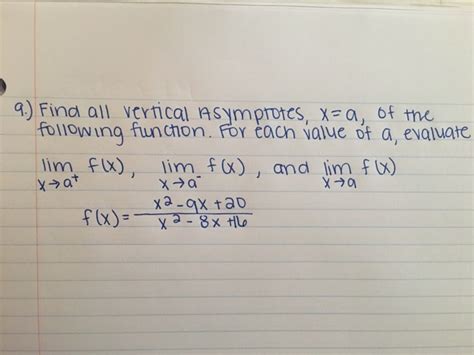 a.) Find all vertical Asymptotes, x=a, of the
following function. For each value of a, evaluate
lim f(x), lim f(x), and lim f(x)
x→a⁺ x→a⁻ x→a
f(x)= x²-9x+20
x²-8x+16